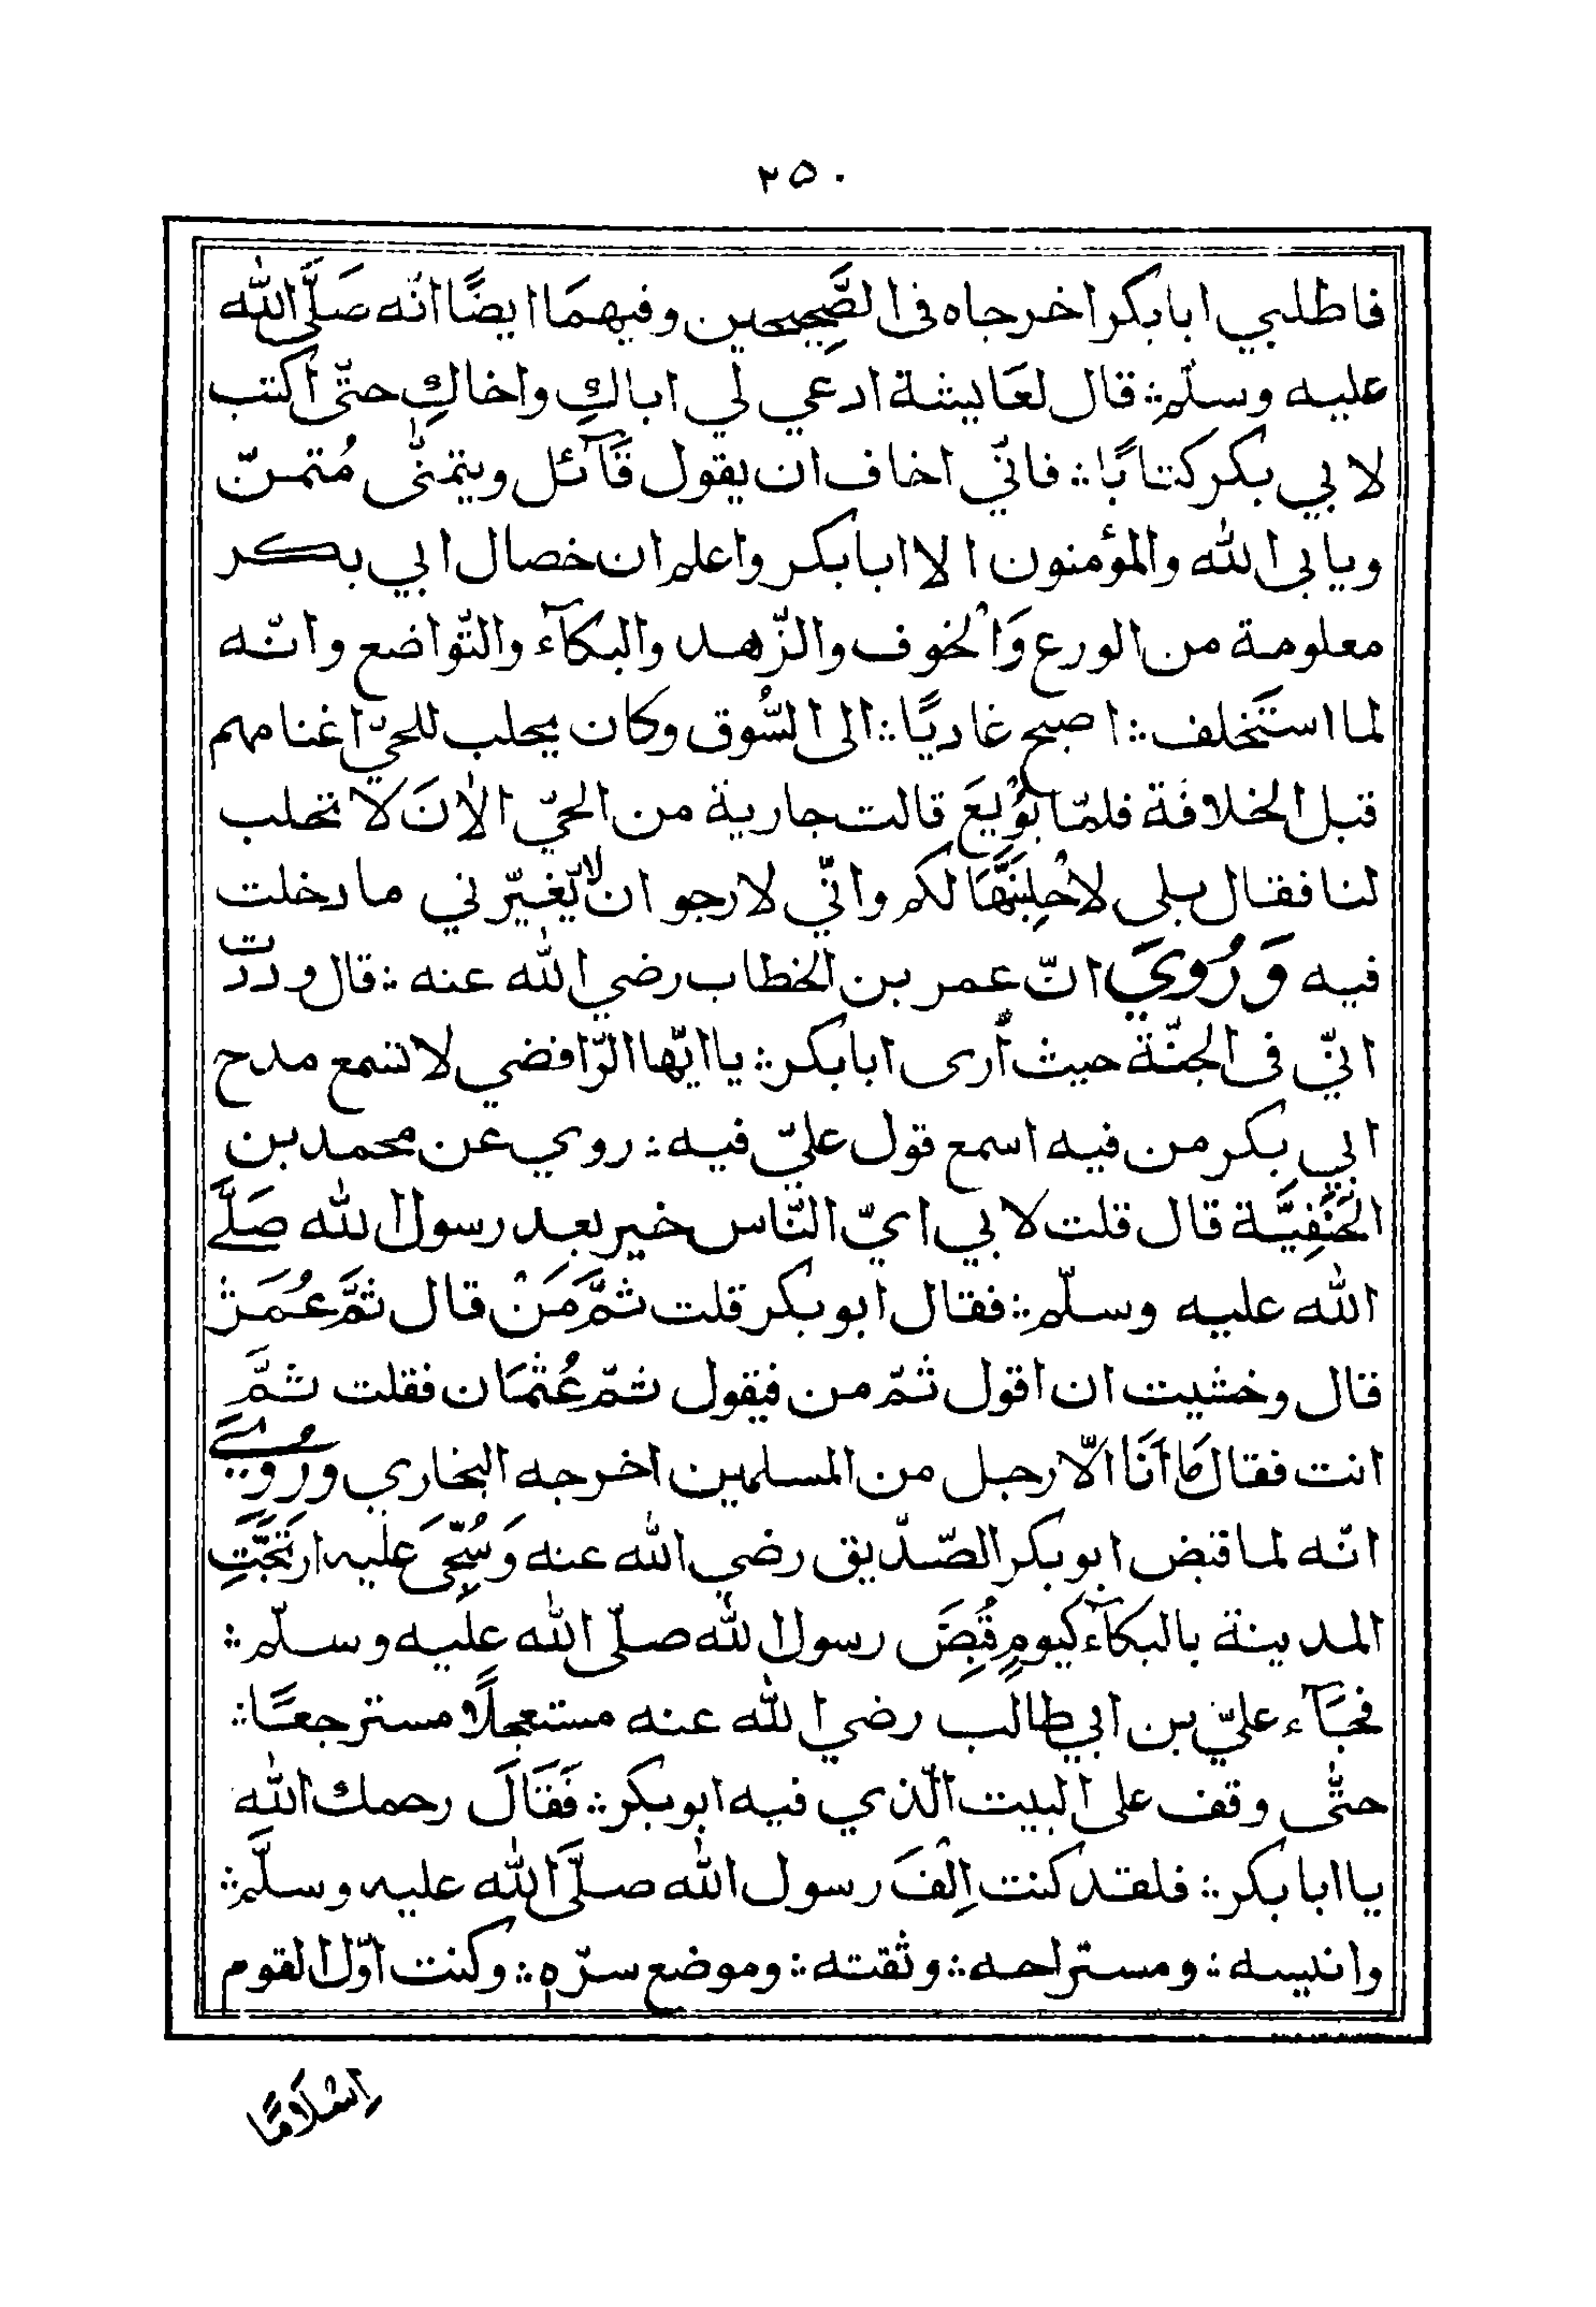 ٢٥٠
فاطلبي ابابكر اخرجاه في الصَّحِيحين وفيهمَا ايضًا انّه صَلَّى الله
عليه وسلّم ؞ قال لعَايشة ادعي لي اباكِ واخاكِ حتّى اكتب
لابي بكر كتابًا ؞ فانّي اخاف ان يقول قَآئل ويتمنّى مُتمنّ
ويابى الله والمؤمنون الا ابابكر واعلم ان خصال ابي بكر
معلومة من الورع وَالْخوف والزّهد والبكآء والتّواضع وانّه
لما استَخلف ؞ اصبح غاديًا ؞ الى السُّوق وكان يحلب للحيّ اغنامهم
قبل الخلافة فلمّا بُوْيِعَ قالت جارية من الحيّ الاٰنَ لَا تحلب
لنا فقال بلى لاَحْلِبَنَّهَا لكم وانّي لارجو ان لا يّغيّرني ما دخلت
فيه وَرُوِيَ انّ عمر بن الخطاب رضي الله عنه ؞ قال وددت
انّي في الجنّة حيث أرى ابابكر ؞ يا ايّها الرّافضي لا تسمع مدح
ابي بكر من فيه اسمع قول عليّ فيه ؞ روي عن محمد بن
الْحَنَفِيَّة قال قلت لابي ايّ النّاس خير بعد رسول الله صَلَّى
الله عليه وسلّم ؞ فقال ابو بكر قلت ثمَّ مَنْ قال ثُمَّ عُمَرْ
قال وخشيت ان اقول ثمّ من فيقول ثمّ عُثمَان فقلت ثمَّ
انت فقال مَا اَنَا الّا رجل من المسلمين اخرجه البخاري ورُوِيَ
انّه لما قبض ابو بكر الصّدّيق رضي الله عنه وَسُجِّىَ عَليه ارتَجَّتِ
المدينة بالبكآء كيومٍ قُبِضَ رسول الله صلّى الله عليه وسلّم ؞
فجَآء عليّ بن ابي طالب رضي الله عنه مستعجلًا مسترجعًا ؞
حتّى وقف على البيت الّذي فيه ابو بكر ؞ فَقَالَ رحمك الله
يا ابا بكر ؞ فلقد كنت اِلْفَ رسول الله صلَّى الله عليه وسلَّم ؞
وانيسه ؞ ومستراحه ؞ وثقته ؞ وموضع سرّه ؞ وكنت اوّل القوم
اِسْلَامًا